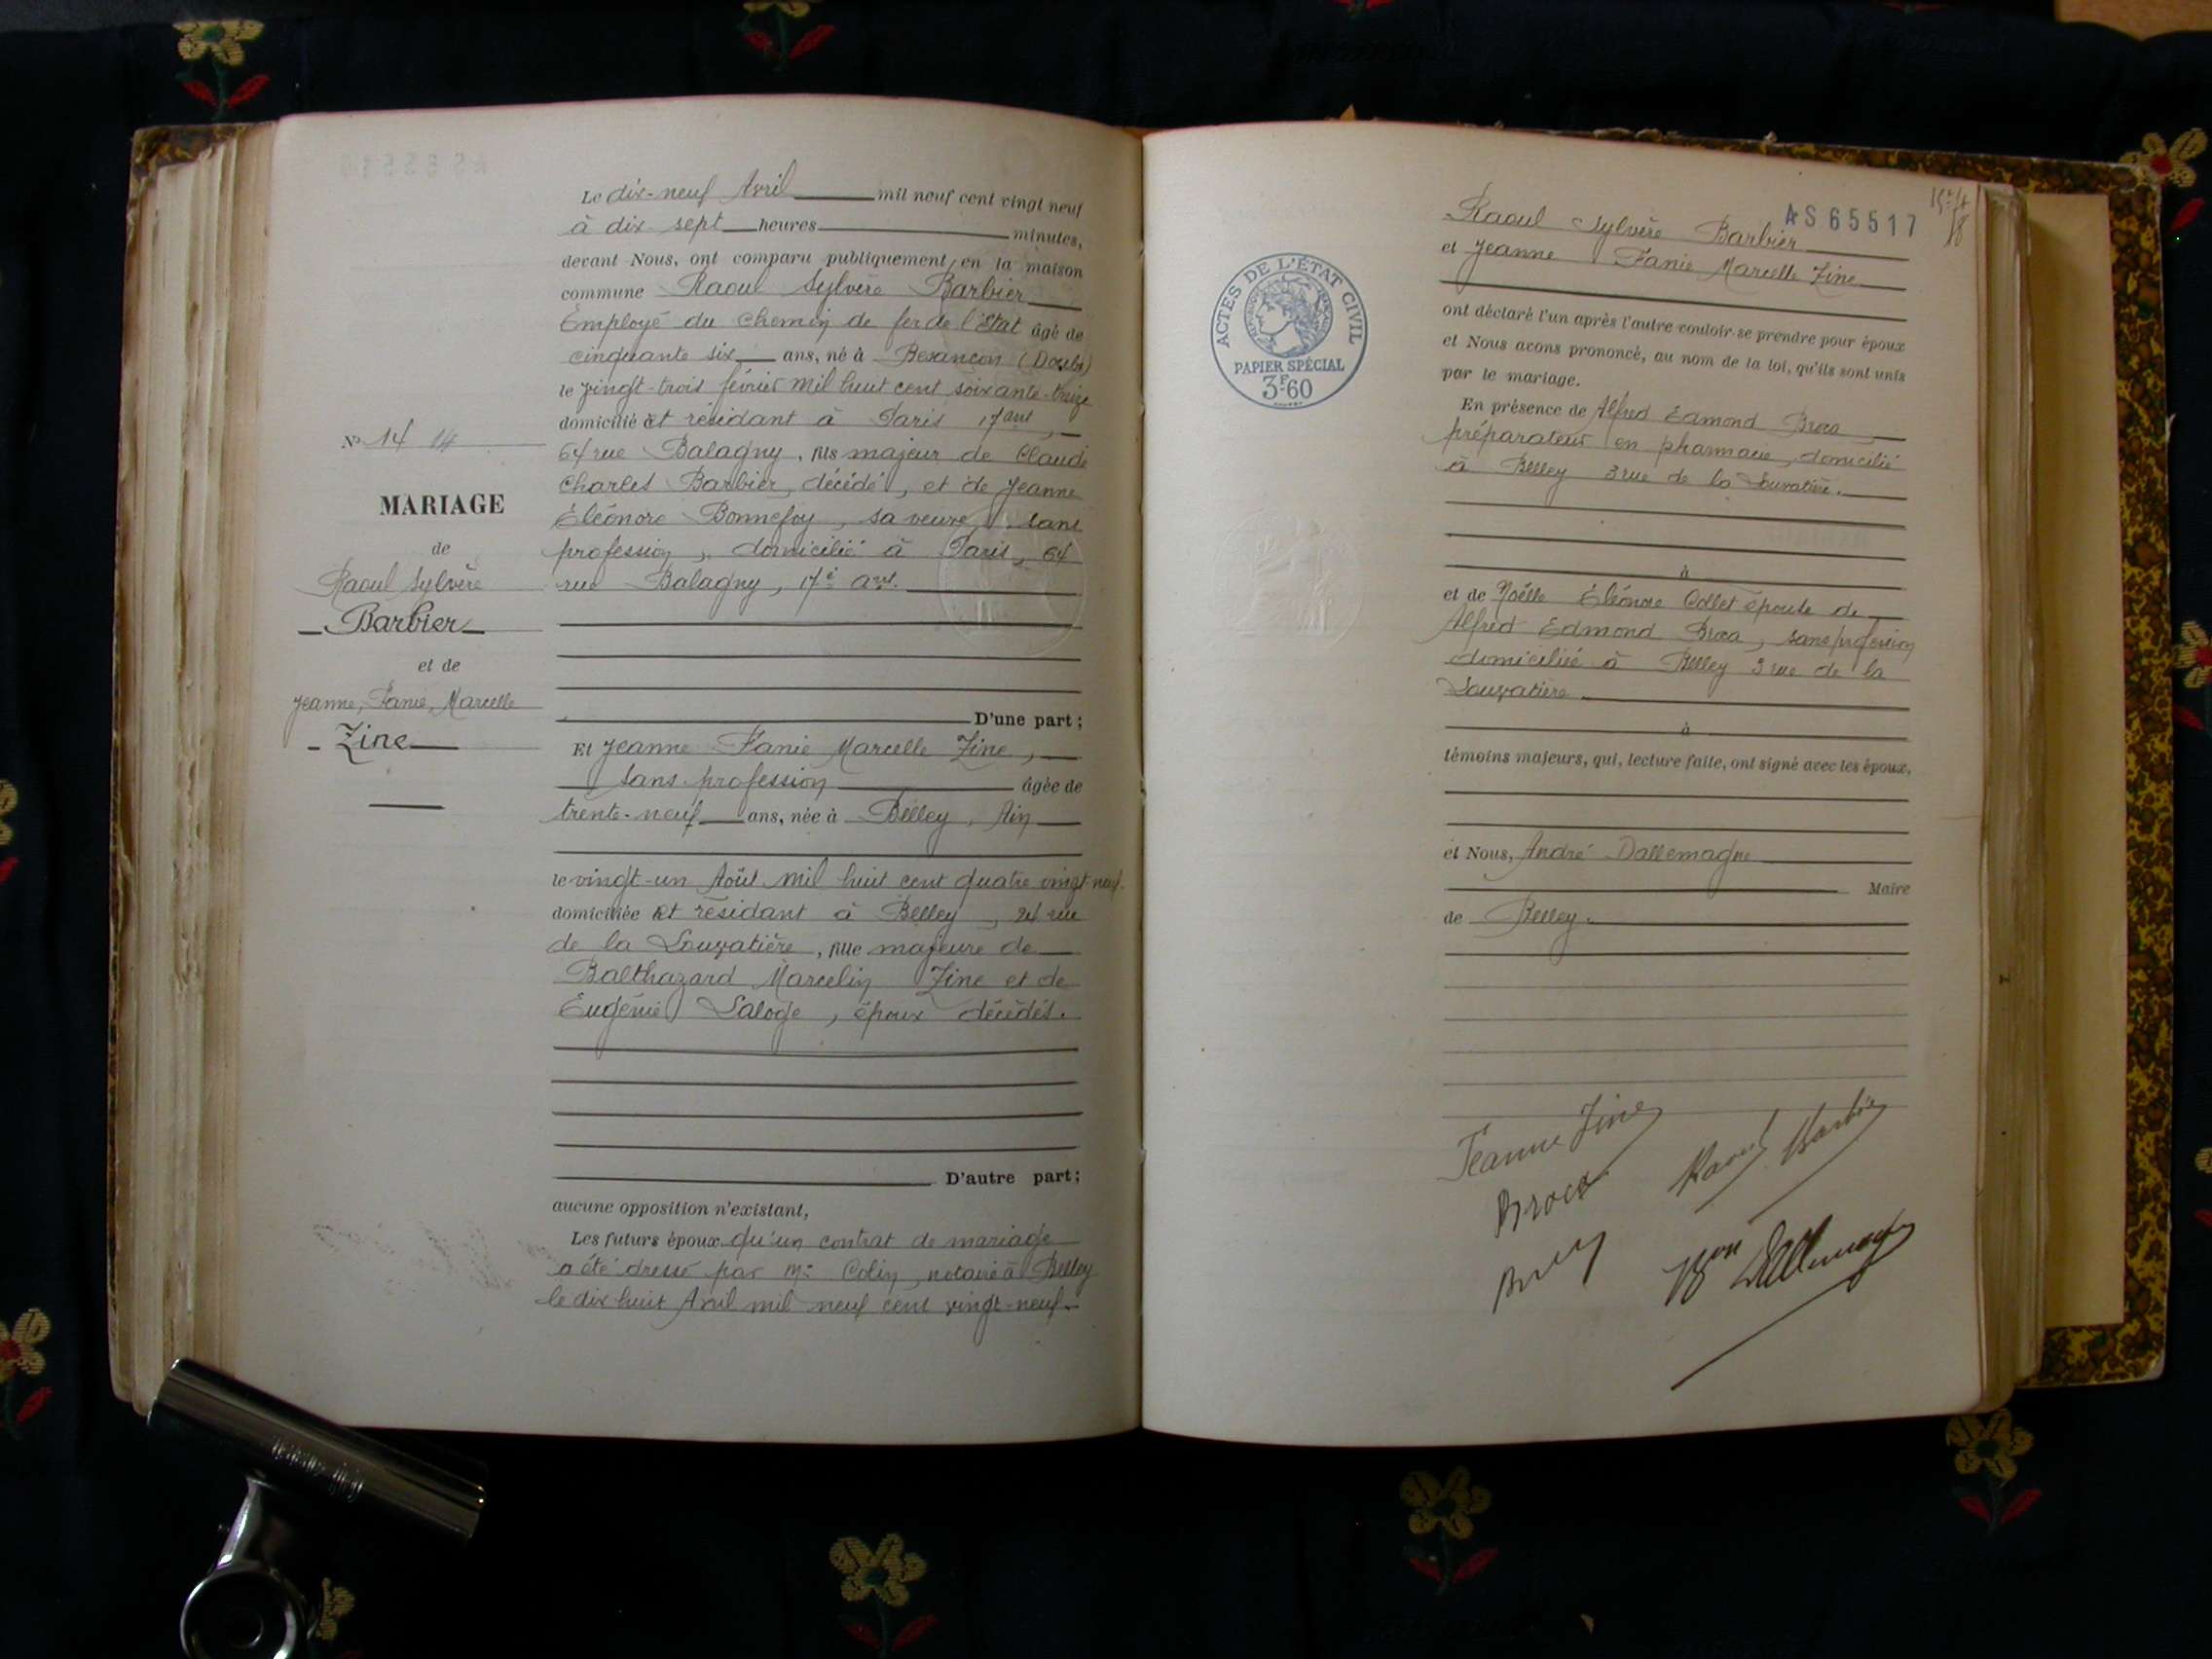 Le dix-neuf Avril mil neuf cent vingt neuf
à dix sept heures minutes,
devant Nous, ont comparu publiquement en la maison
commune Raoul Sylvère Barbier
Employé du chemin de fer de l'Etat âgé de
cinquante six ans, né à Besançon (Doubs)
le vingt-trois février mil huit cent soixante-treize
domicilié et résidant à Paris 17 arrt,
64 rue Balagny, fils majeur de Claude
Charles Barbier, décédé, et de Jeanne
Éléonore Bonnefoy, sa veuve, sans
profession, domicilié à Paris, 64
rue Balagny, 17è arrt.
D'une part;
Et Jeanne Fanie Marcelle Zine,
sans profession âgée de
trente-neuf ans, née à Belley, Ain
le vingt-un Août mil huit cent quatre vingt neuf
domiciliée et résidant à Belley, 24 rue
de la Louvatière, fille majeure de
Balthazard Marcelin Zine et de
Eugénie Laloge, époux décédés.
D'autre part;
aucune opposition n'existant,
Les futurs époux qu'un contrat de mariage
a été dressé par Me Colin, notaire à Belley
le dix huit Avril mil neuf cent vingt-neuf
No 14 14
MARIAGE
de
Raoul Sylvère
Barbier
et de
Jeanne, Fanie, Marcelle
Zine
AS65517
Raoul Sylvère Barbier
et Jeanne Fanie Marcelle Zine
ont déclaré l'un après l'autre vouloir se prendre pour époux
et Nous avons prononcé, au nom de la loi, qu'ils sont unis
par le mariage.
En présence de Alfred Edmond Broca
préparateur en pharmacie, domicilié
à Belley 3 rue de la Louvatière.
à
et de Noëlle Éléonore Collet épouse de
Alfred Edmond Broca, sans profession
domiciliée à Belley 3 rue de la
Louvatière
à
témoins majeurs, qui, lecture faite, ont signé avec les époux,
et Nous, André Dallemagne
Maire
de Belley.
ACTES DE L'ÉTAT CIVIL
RÉPUBLIQUE FRANÇAISE
PAPIER SPÉCIAL
3F60
Jeanne Zine
Raoul Barbier
Broca
Bon Dallemagne